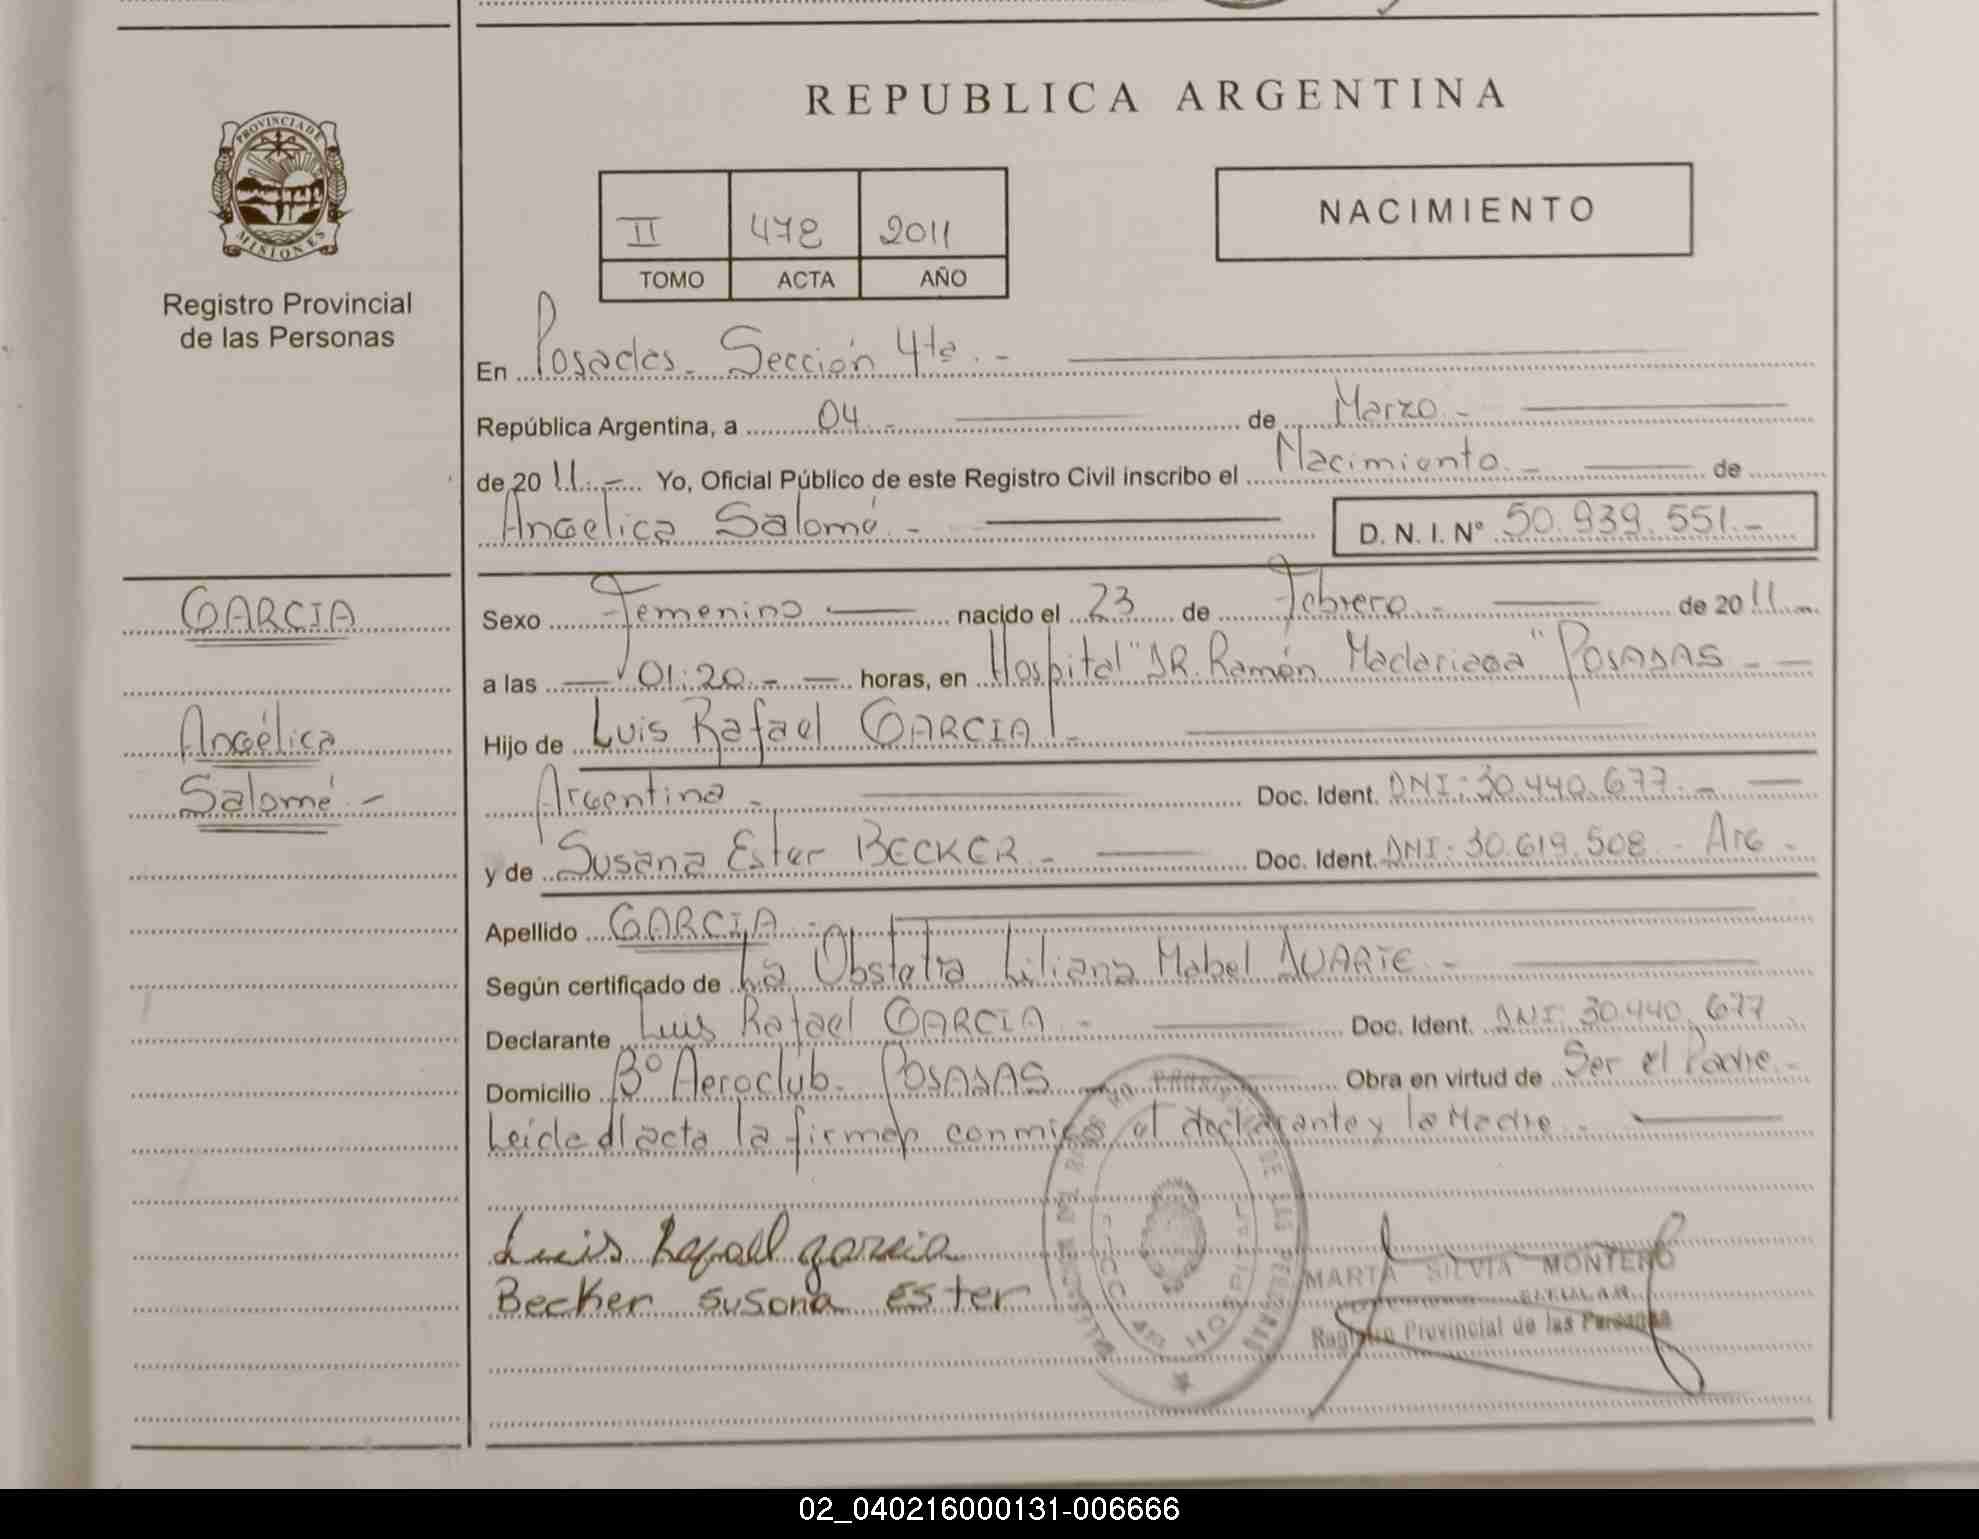 REPUBLICA ARGENTINA
PROVINCIA DE MISIONES
Registro Provincial
de las Personas
II 478 2011
TOMO ACTA AÑO
NACIMIENTO
En Posadas - Sección 4ta. -
República Argentina, a 04 - de Marzo -
de 2011.- Yo, Oficial Público de este Registro Civil inscribo el Nacimiento - de
Angelica Salomé - D. N. I. Nº 50.939.551.-
GARCIA
Angélica
Salomé -
Sexo Femenino nacido el 23 de Febrero - de 2011.-
a las 01:20.- horas, en Hospital "DR. Ramón Madariaga" POSADAS - -
Hijo de Luis Rafael GARCIA -
Argentino - Doc. Ident. DNI: 30.440.677.-
y de Susana Ester BECKER - Doc. Ident. DNI: 30.619.508 - Arg -
Apellido GARCIA
Según certificado de La Obstetra Liliana Mabel DUARTE -
Declarante Luis Rafael GARCIA - Doc. Ident. DNI: 30.440.677
Domicilio Bº Aeroclub - POSADAS Obra en virtud de Ser el Padre -
Leída el acta la firman conmigo el declarante y la Madre -
Luis Rafael garcia
Becker susana Ester
MARTA SILVIA MONTERO
TITULAR
Registro Provincial de las Personas
02_040216000131-006666